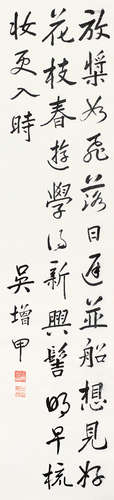 放槳如飛落日遲並船想見好
花枝春遊學得新興髻明早梳
妝更入時
吳增甲